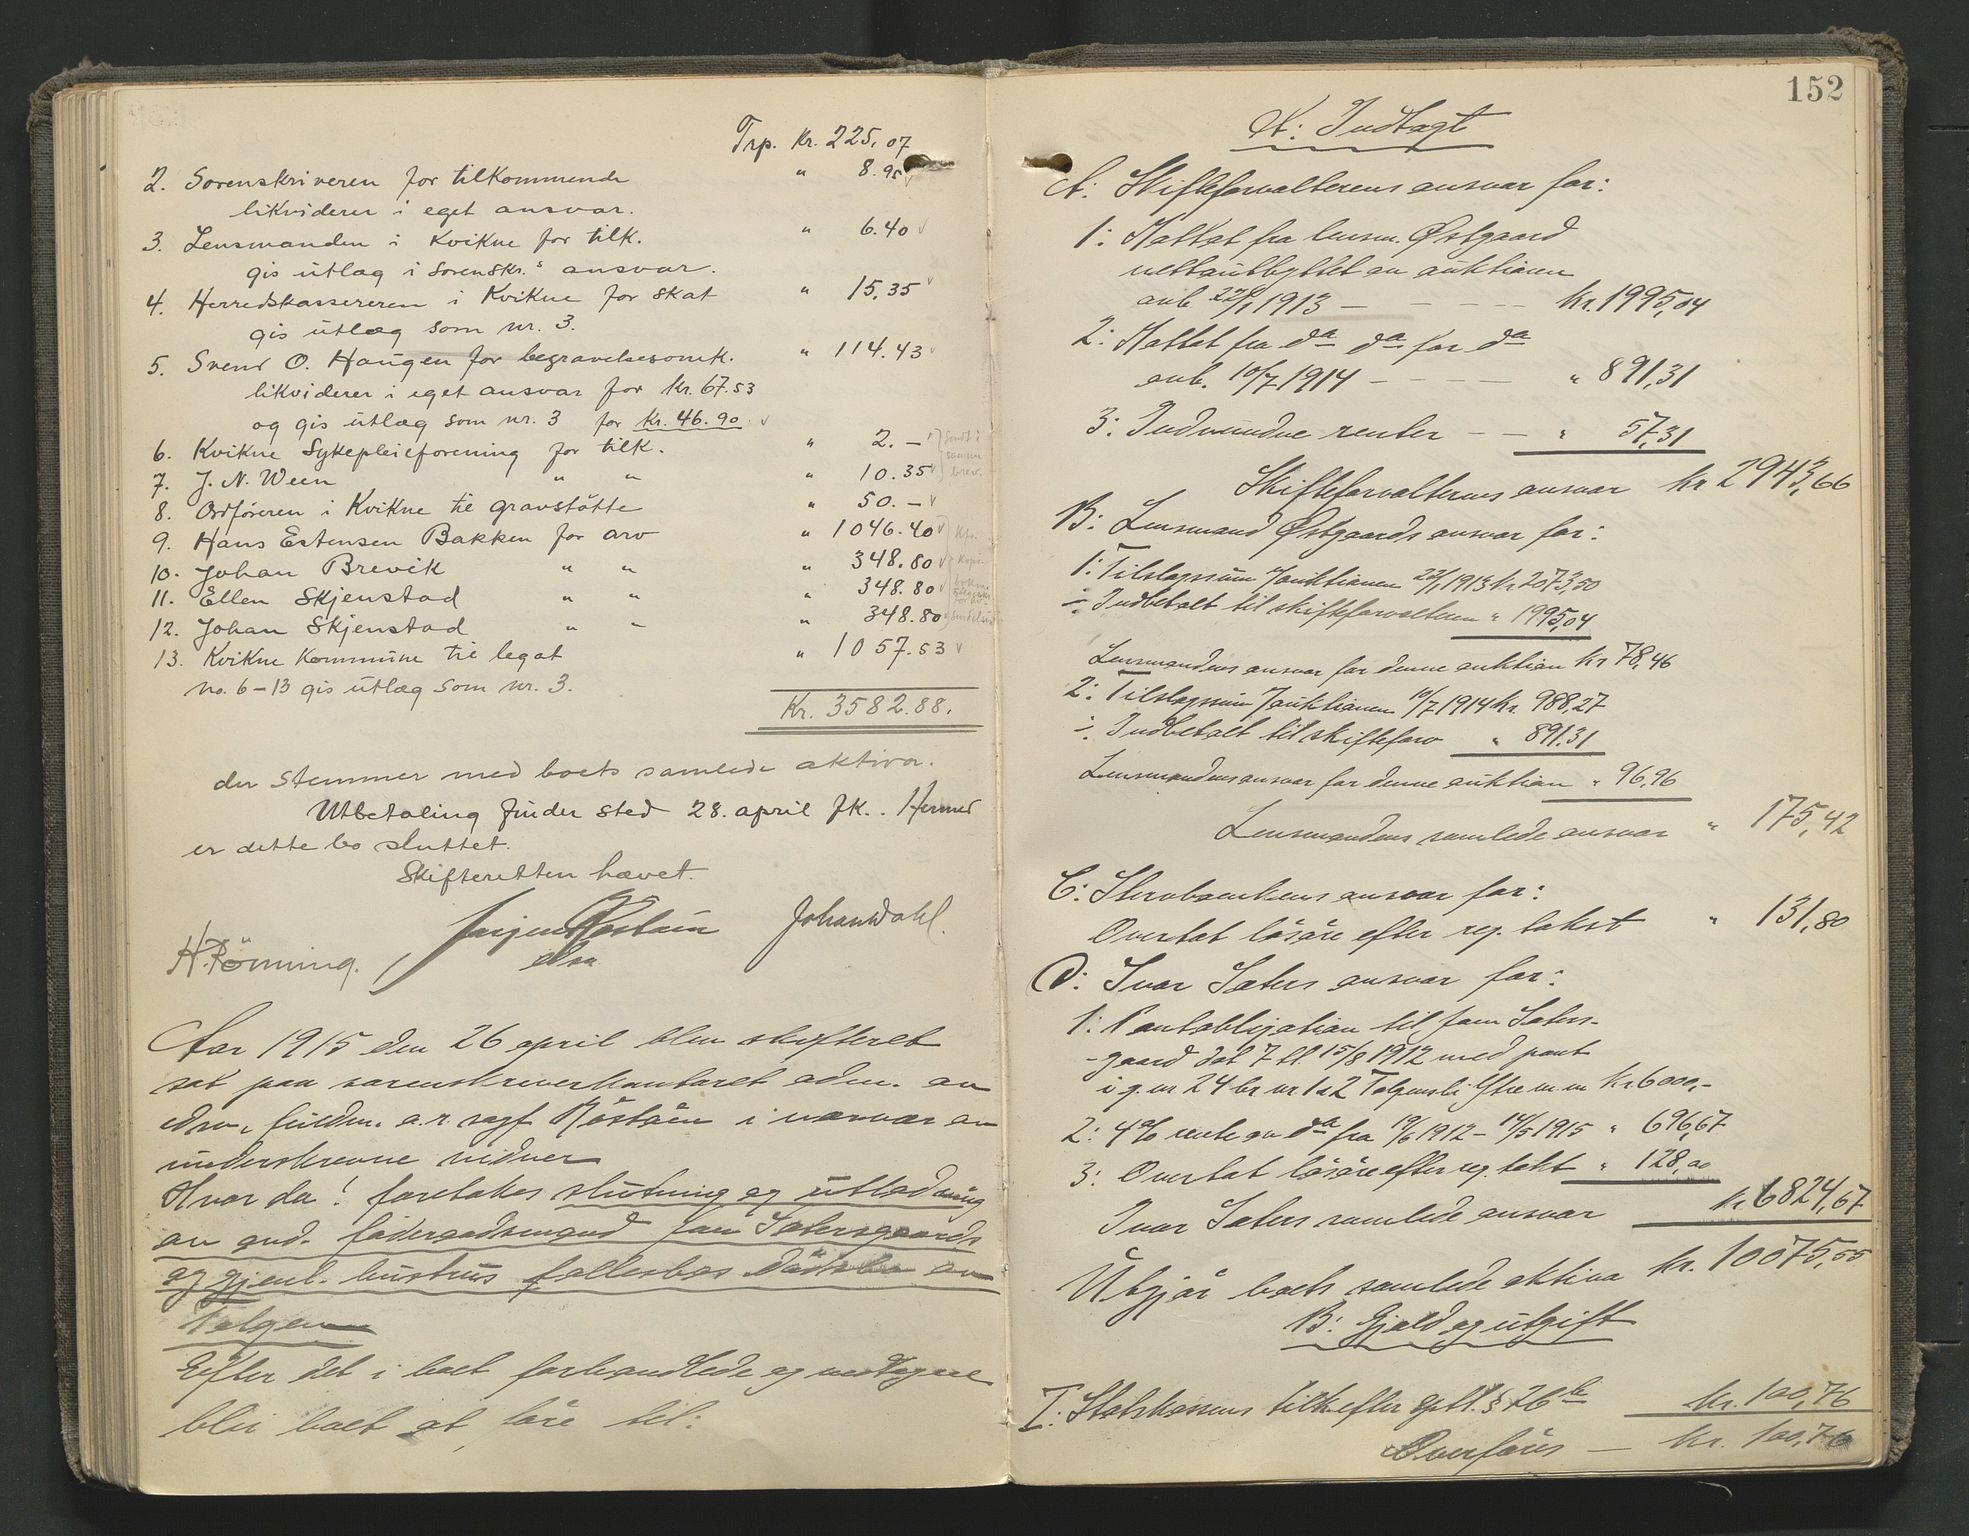 Trp. Kr. 225,07
2. Sorenskriveren for tilkommende " 8.95
likviderer i eget ansvar.
3. Lensmanden i Kvikne for tilk. " 6.40
gis utlæg i sorenskr.s ansvar.
4. Herredskassereren i Kvikne for skat " 15,35
gis utlæg som nr. 3.
5. Svend O. Haugen for begravelsesomk. " 114.43
likviderer i eget ansvar for kr. 67.53
og gis utlæg som nr. 3 for kr. 46.90
6. Kvikne Sykepleieforening for tilk. " 2.-
7. J. N. Ween " " " 10.35
8. Ordföreren i Kvikne til gravstötte " 50.-
9. Hans Estensen Bakken for arv " 1046.40
10. Johan Brevik " " " 348.80
11. Ellen Skjenstad " " " 348.80
12. Johan Skjenstad " " " 348.80
13. Kvikne Kommune til legat " 1057.53
no. 6-13 gis utlæg som nr. 3.
Kr. 3582.88.
der stemmer med boets samlede aktiva.
Utbetaling finder sted 28. april fk.. Hermed
er dette bo sluttet.
Skifteretten hævet.
Johan Dahl.
H. Rönning.
Aar 1915 den 26 april blev skifteret
sat paa sorenskriverkontoret adm. av
edsv. fuldm. o.r.sagf Röstöen i nærvær av
underskrevne vidner
Hvor da! foretokes slutning og utlodning
av avd. födergodsmand Jon Sætersgaards
og gjenl. hustrus fællesbo
Tolgen
Efter det i boet forhandlede og vedtagne
blir boet at före til:
152
A: Indtægt
A: Skifteforvalterens ansvar for:
1: Mottat fra lensm. Østgaard
nettoutbyttet av auktionen
avh. 22/1 1913 - - - - Kr. 1995,04
2: Mottat fra do do for do
avh. 10/7 1914 - - - - " 891,31
3: Indvundne renter - - " 57,31
Skifteforvalterens ansvar kr 2943,66
B: Lensmand Østgaards ansvar for:
1: Tilslagssum f auktionen 22/1 1913 kr 2073,50
÷ Indbetalt til skifteforvalteren " 1995,04
Lensmandens ansvar for denne auktion kr 78,46
2: Tilslagssum f auktionen 10/7 1914 kr. 988,27
÷ Indbetalt til skifteforv " 891.31
Lensmandens ansvar for denne auktion " 96,96
Lensmandens samlede ansvar " 175,42
C: Stervboenkens ansvar for:
Overtat lösöre efter reg. takst " 131,80
D: Ivar Sæters ansvar for:
1: Pantobligation til Jon Sæters-
-gaard dat 7 tl 15/8 1912 med pant
i g. nr 24 br nr 1 a 2 Kr 6000,-
2: 4% rente av do fra 19/6 1912 - 14/5 1915 " 696,67
3: Overtat lösöre efter reg. takst " 128,00
Ivar Sæters samlede ansvar kr. 6824,67
Utgjör boets samlede aktiva kr. 10075,55
B: Gjæld og utgift
I: Statskassens tilk efter gptl. § 26 b kr. 100,76
Overföres - kr. 100,76